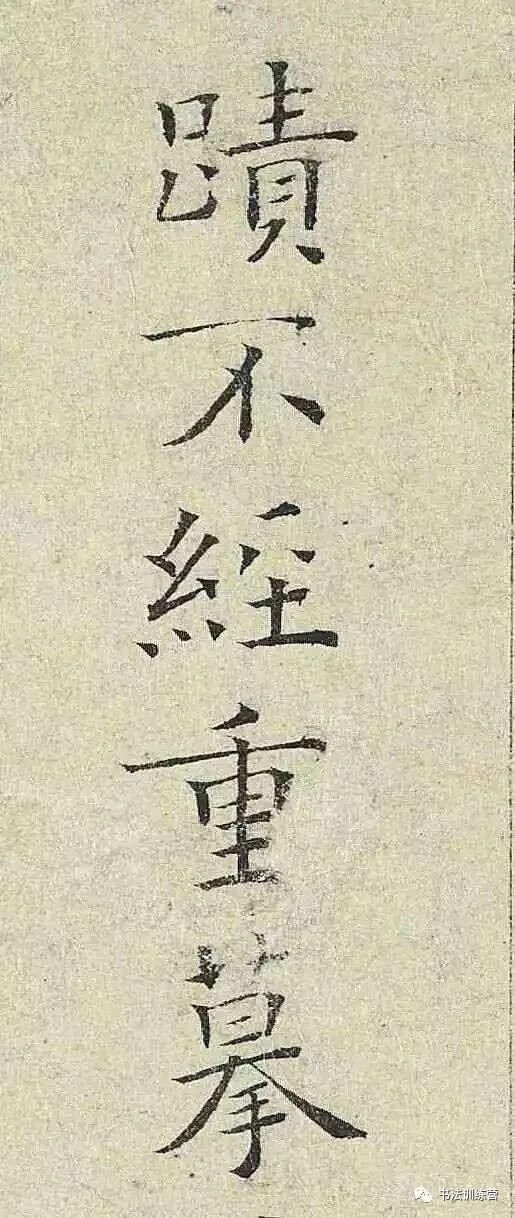 蹟不經重摹
书法训练营